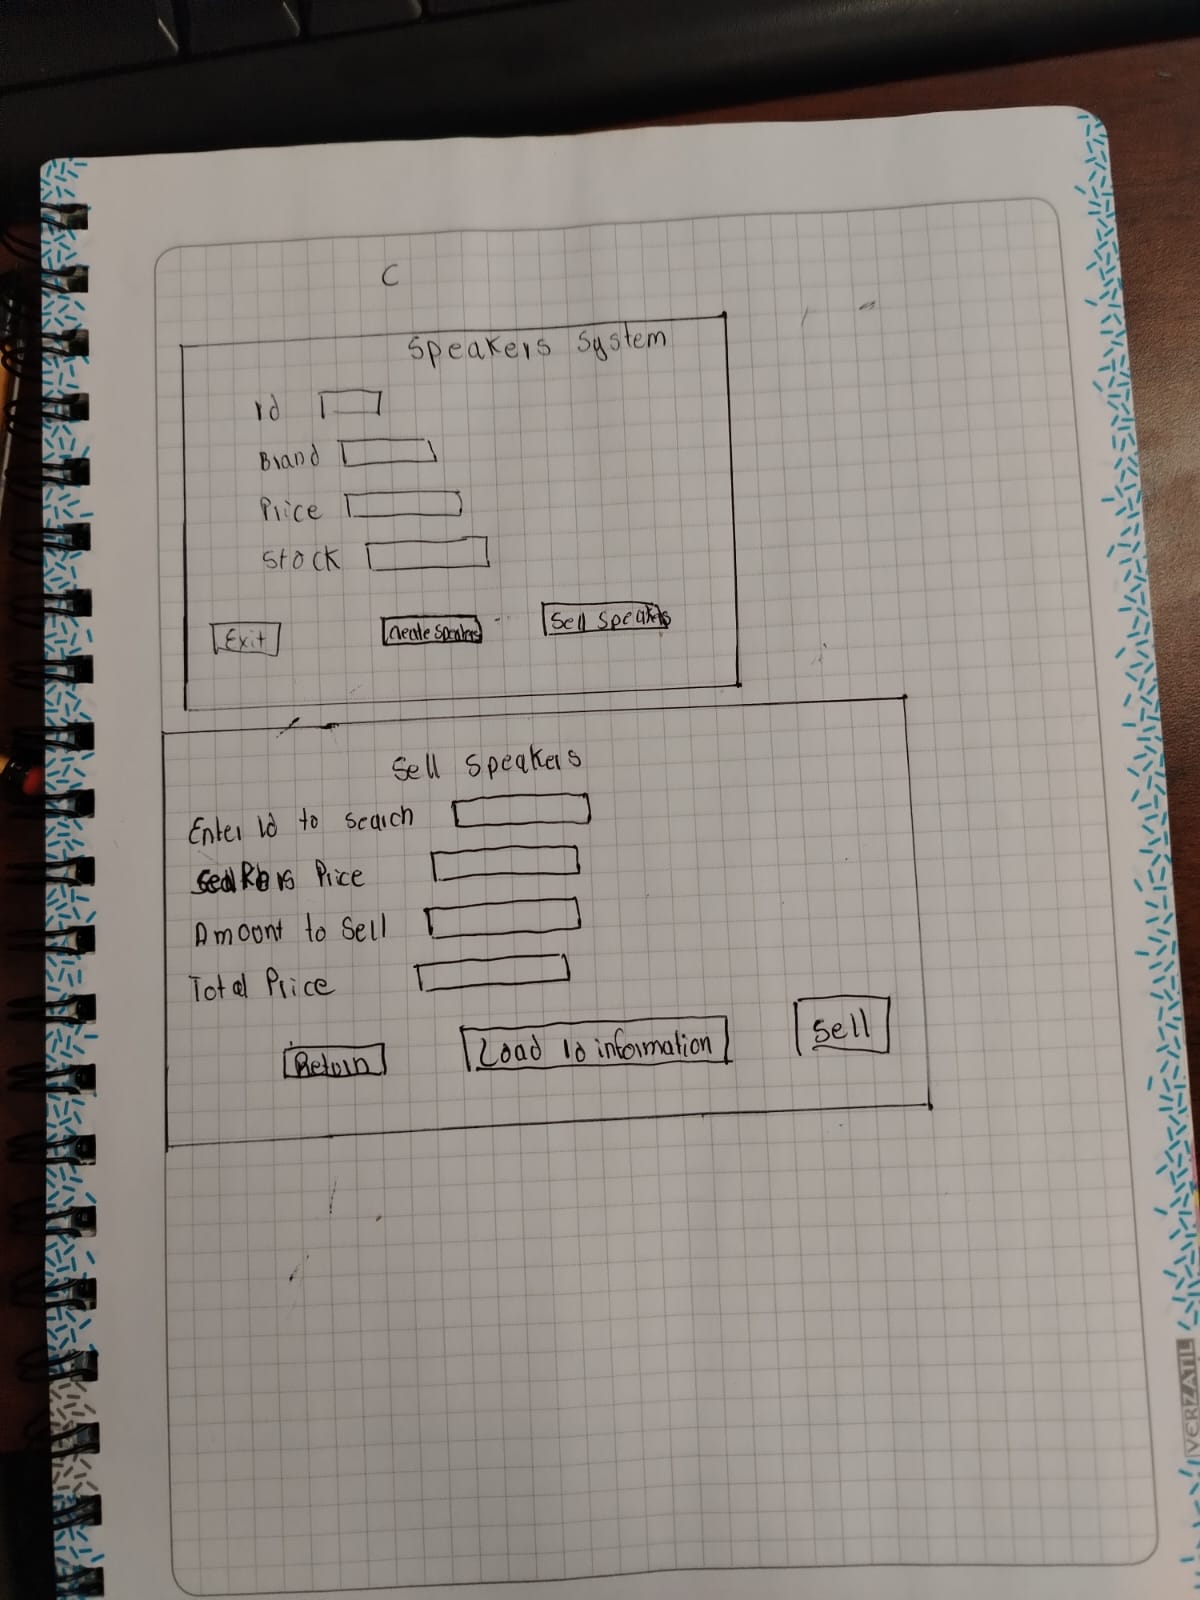 C
Speakers System
Id
Brand
Price
Stock
Exit
Create Speakers
Sell Speakers
Sell Speakers
Enter Id to search
Price
Amount to Sell
Total Price
Return
Load Id information
Sell
VERZATIL